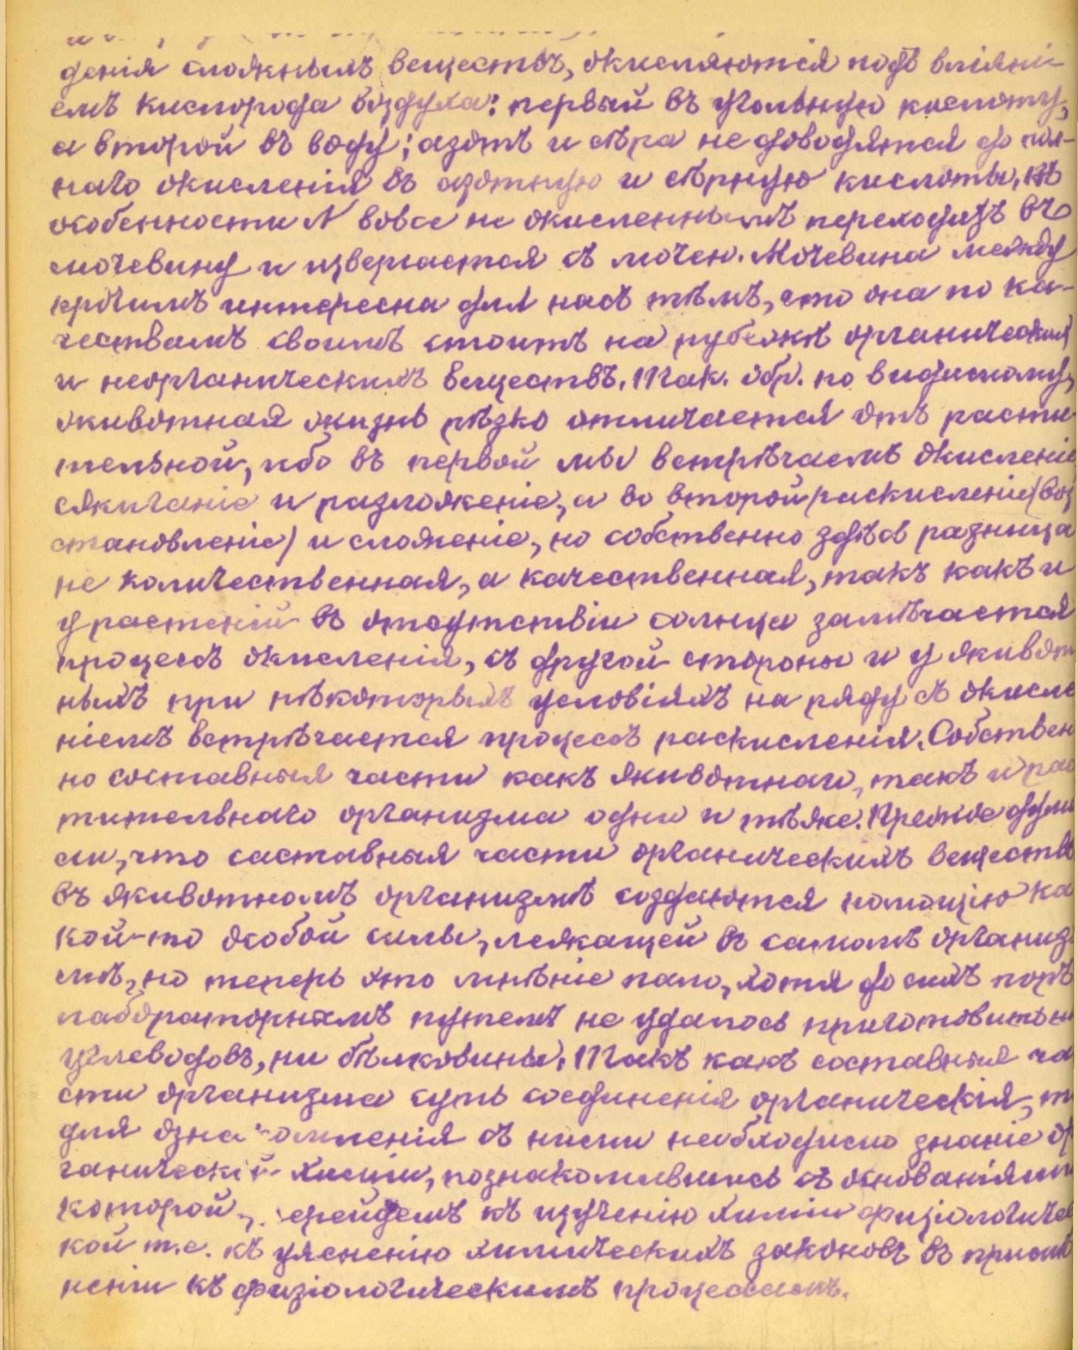 денія сложнымъ веществъ, окисляются подъ вліяні-
емъ кислорода воздуха: первый въ угольную кислоту,
а второй въ воду; азотъ и сѣра не доводятся до пол-
наго окисленія въ азотную и сѣрную кислоты, въ
особенности N вовсе не окисленнымъ переходитъ въ
мочевину и извергается съ мочей. Мочевина между
прочимъ интересна для насъ тѣмъ, что она по ка-
чествамъ своимъ стоитъ на рубежѣ органическихъ
и неорганическихъ веществъ. Так. обр. по видимому,
животная жизнь рѣзко отличается отъ расти
тельной, ибо въ первой мы встрѣчаемъ окисленіе
сжиганіе и разложеніе, а во второй раскисленіе (воз
становленіе) и сложеніе, но собственно здѣсь разница
не количественная, а качественная, такъ какъ и
у растеній въ отсутствіи солнца замѣчается
процессъ окисленія, съ другой стороны и у живот
ныхъ при нѣкоторыхъ условіяхъ на ряду съ окисле
ніемъ встрѣчается процессъ раскисленія. Собствен
но составныя части какъ животнаго, такъ и рас
тительнаго организма одни и тѣже. Прежде дума
ли, что составныя части органическихъ веществъ
въ животномъ организмѣ создаются помощію ка
кой-то особой силы, лежащей въ самомъ организ
мѣ, но теперь это мнѣніе пало, хотя до сихъ поръ
лабораторнымъ путемъ не удалось приготовить ни
углеводовъ, ни бѣлковины. Такъ какъ составныя ча
сти организма суть соединенія органическія, т
для ознакомленія съ ними необходимо знаніе ор
ганической химіи, познакомившись съ основаніями
которой, перейдемъ къ изученію химіи физіологичес
кой т.е. къ уясненію химическихъ законовъ въ примѣ
неніи къ физіологическимъ процессамъ.